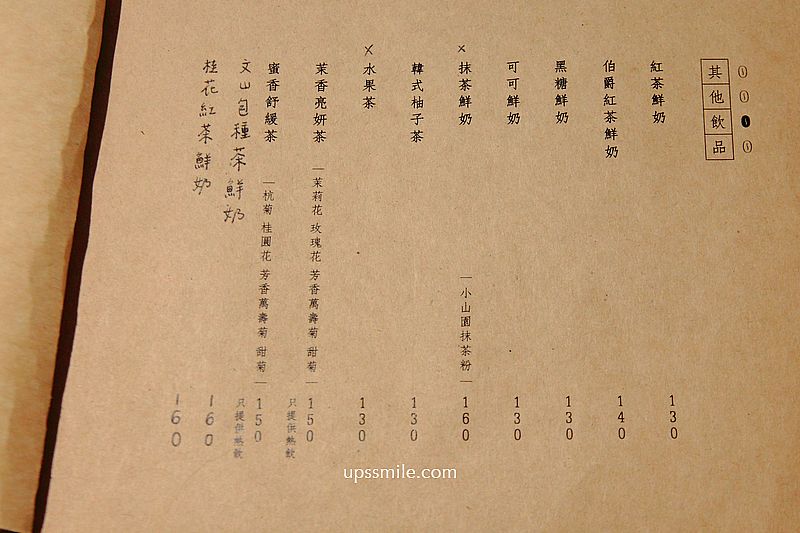 其他飲品
紅茶鮮奶 130
伯爵紅茶鮮奶 140
黑糖鮮奶 130
可可鮮奶 130
×抹茶鮮奶 —小山園抹茶粉— 160
韓式柚子茶 130
×水果茶 130
茉香亮妍茶 —茉莉花 玫瑰花 芳香萬壽菊 甜菊— 150
只提供熱飲
蜜香舒緩茶 —杭菊 桂圓花 芳香萬壽菊 甜菊— 150
只提供熱飲
文山包種茶鮮奶 160
桂花紅茶鮮奶 160
upssmile.com